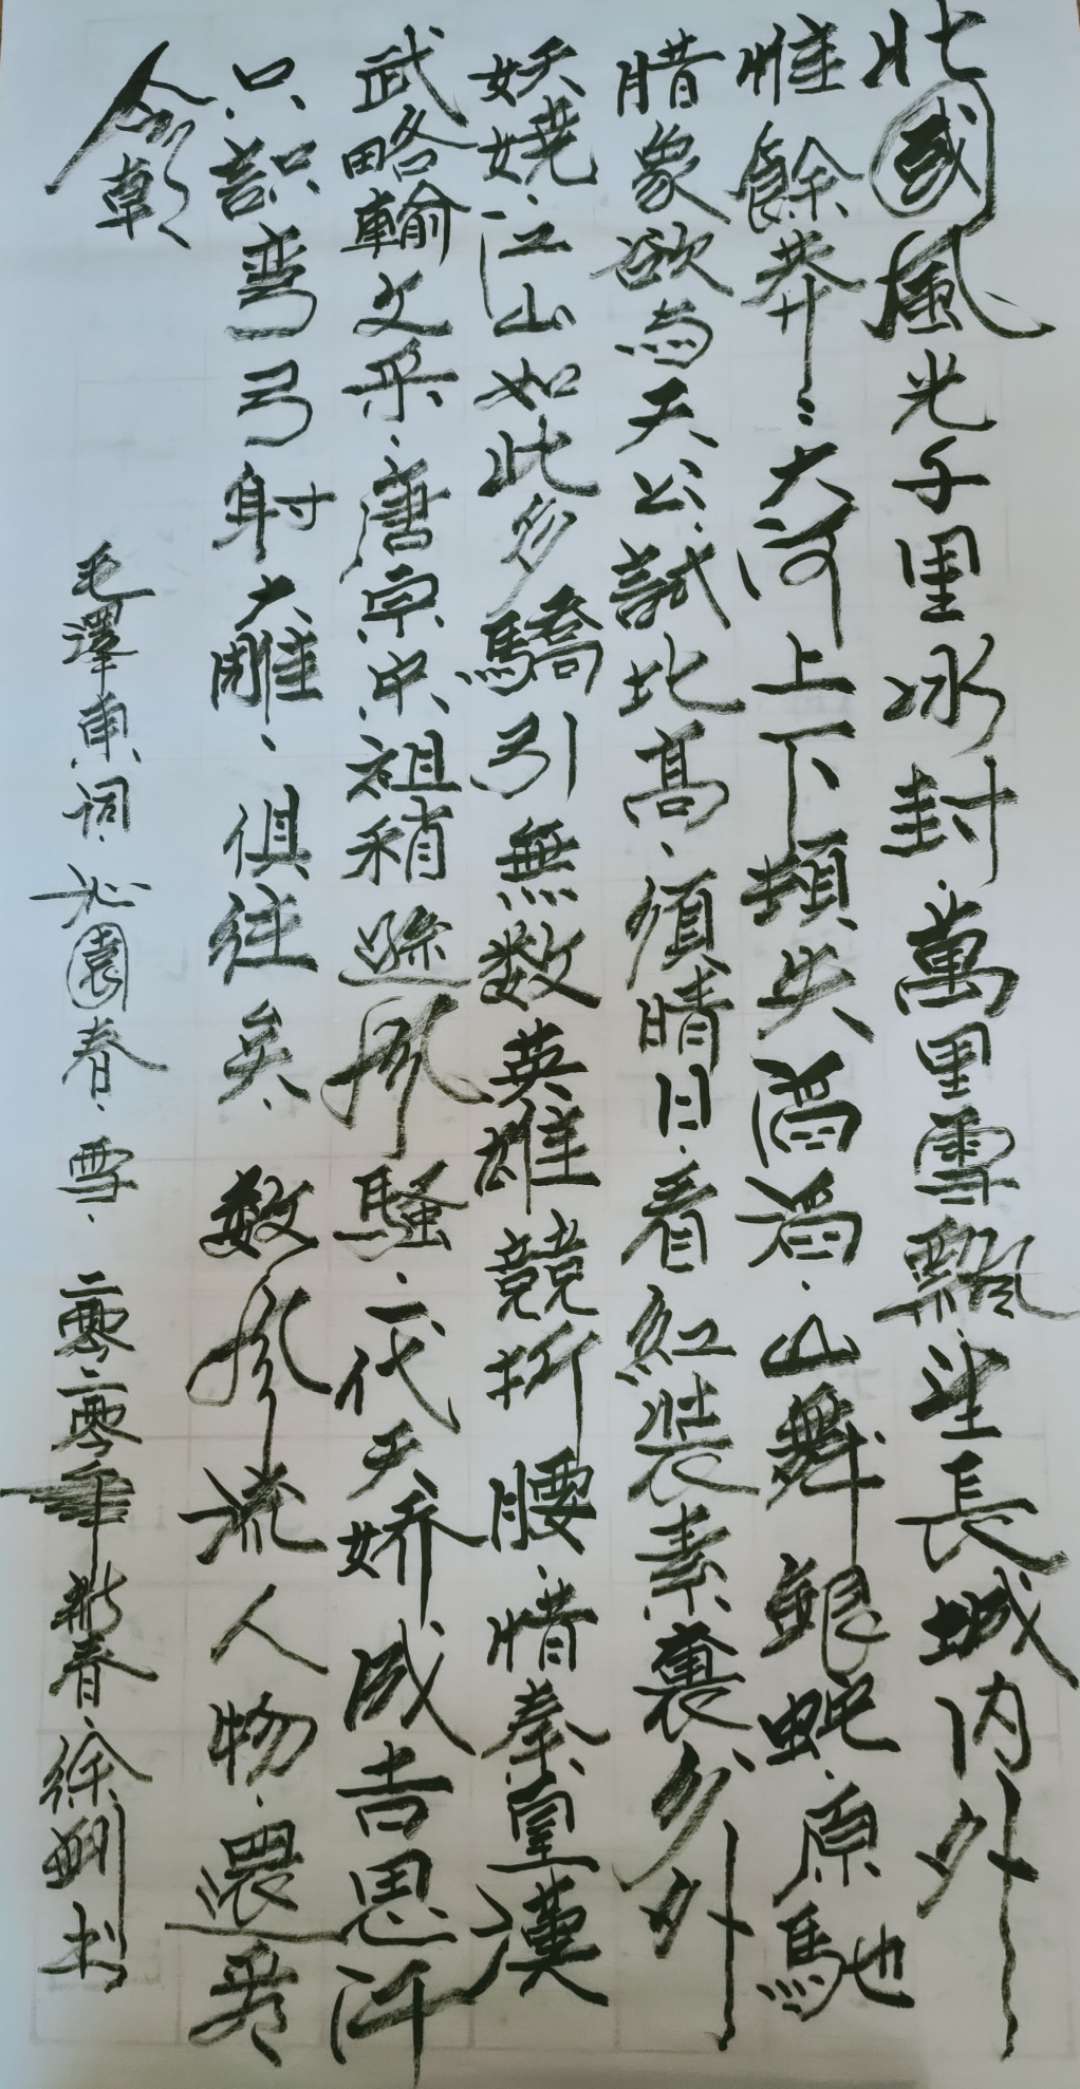 北國風光千里冰封、萬里雪飄望長城内外
惟餘莽〻大河上下頓失滔滔、山舞銀蛇、原馳
腊象欲与天公試比高、須晴日、看紅装素裹分外
妖娆、江山如此多驕引無数英雄競折腰、惜秦皇漢
武略輸文采、唐宗宋祖稍遜風騷、一代天娇成吉思汗
只識弯弓射大雕、俱往矣、数風流人物、還看
今朝
毛澤東词、沁園春、雪、二零二零年新春、徐 书